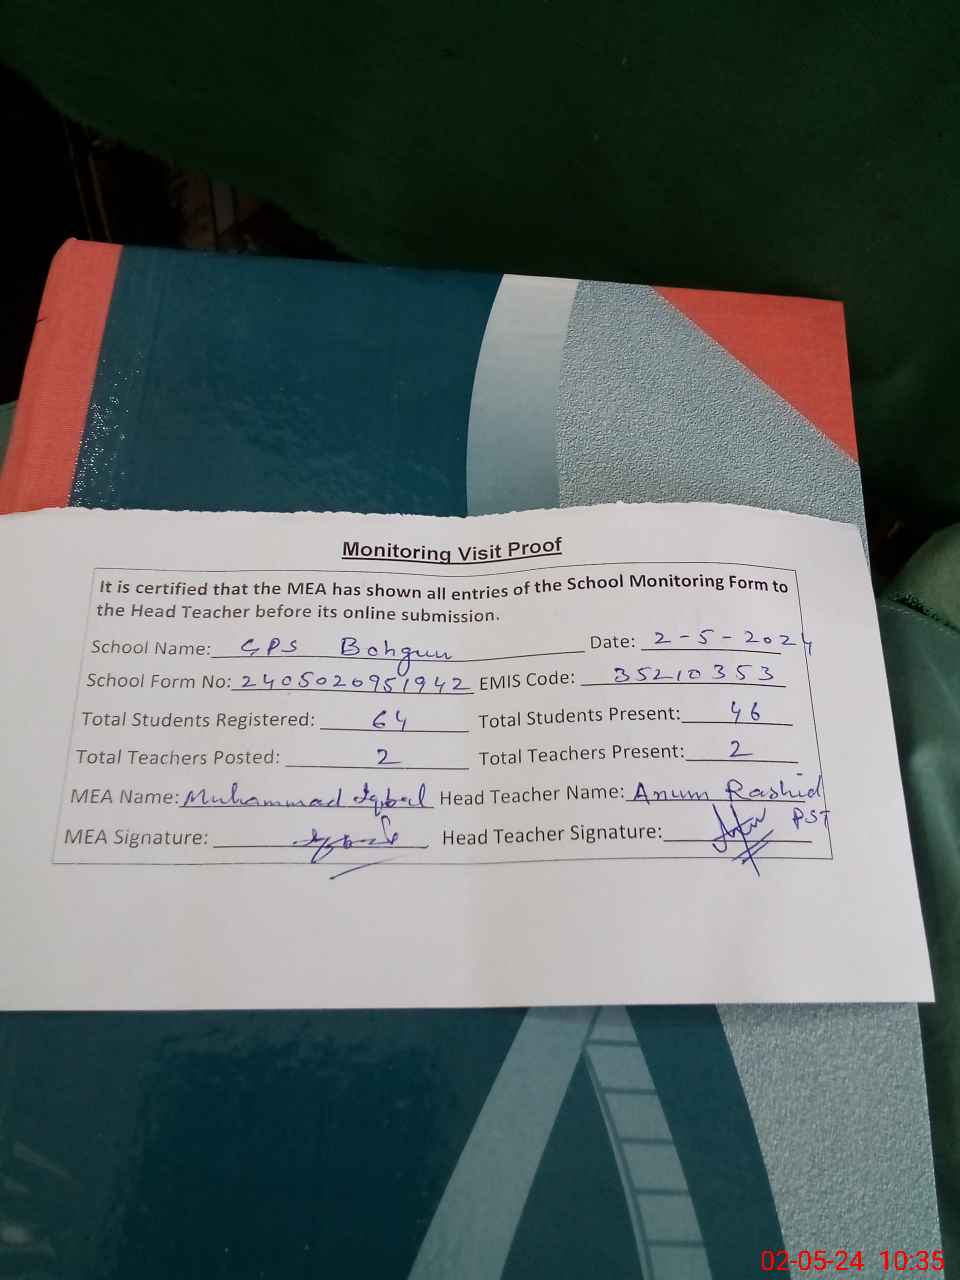 Monitoring Visit Proof
It is certified that the MEA has shown all entries of the School Monitoring Form to
the Head Teacher before its online submission.
School Name: GPS Bohgun Date: 2-5-2024
School Form No: 2405020951942 EMIS Code: 35210353
Total Students Registered: 64 Total Students Present: 46
Total Teachers Posted: 2 Total Teachers Present: 2
MEA Name: Muhammad Iqbal Head Teacher Name: Anum Rashid
MEA Signature: Head Teacher Signature: PST
02-05-24 10:35